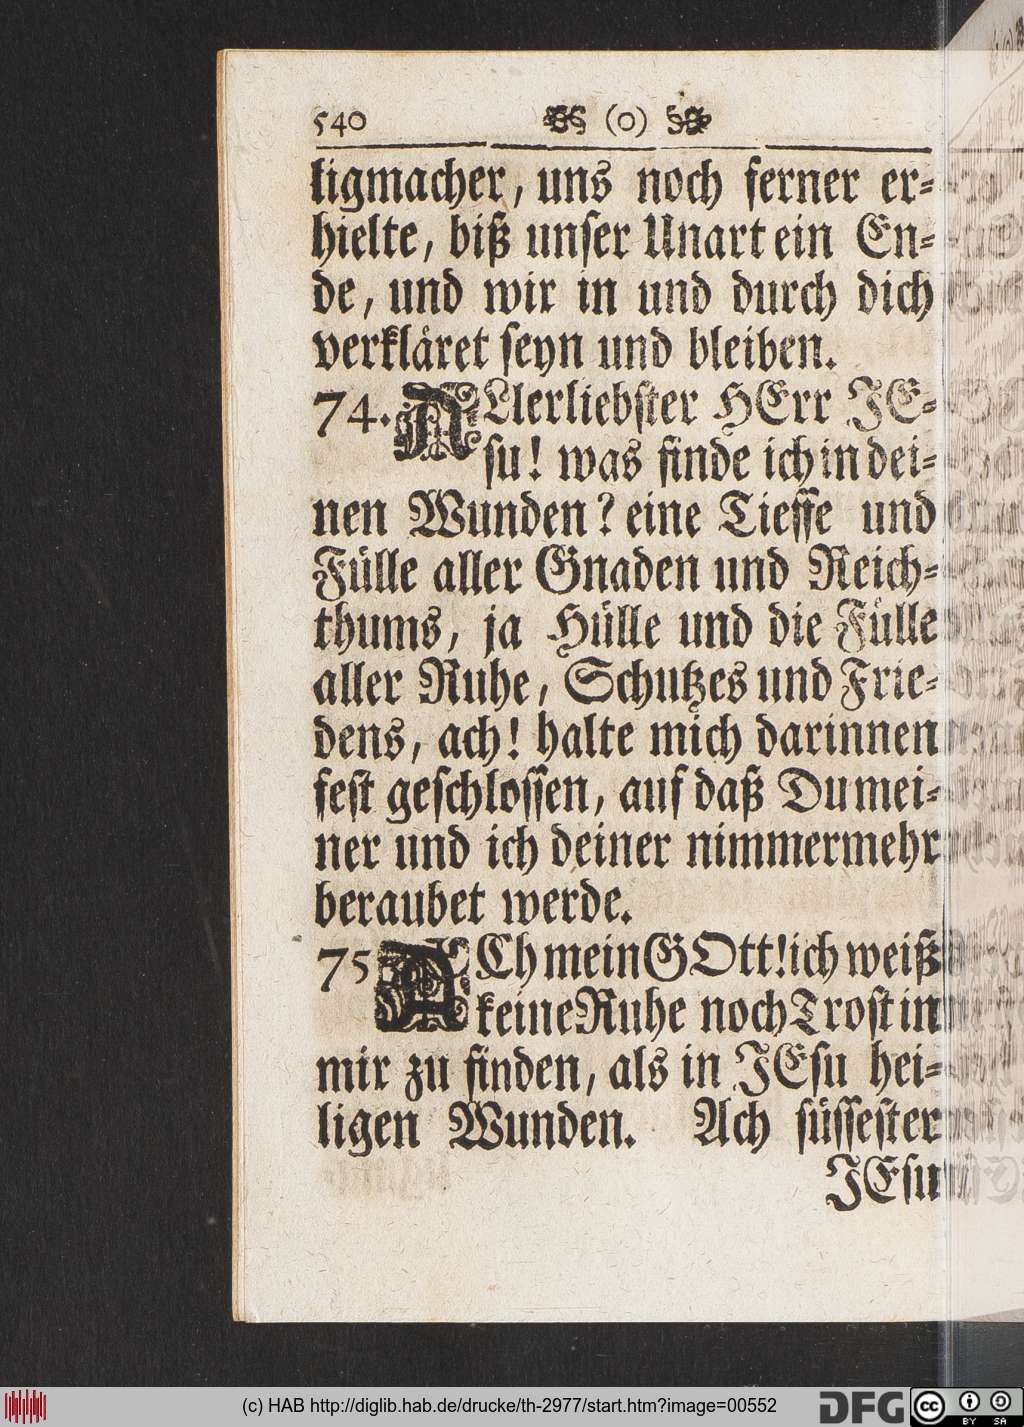 540 (o)
ligmacher, uns noch ferner er-
hielte, biß unser Unart ein En-
de, und wir in und durch dich
verkläret seyn und bleiben.
74. ALlerliebster HErr JE-
su! was finde ich in dei-
nen Wunden? eine Tieffe und
Fülle aller Gnaden und Reich-
thums, ja Hülle und die Fülle
aller Ruhe, Schutzes und Frie-
dens, ach! halte mich darinnen
fest geschlossen, auf daß Du mei-
ner und ich deiner nimmermehr
beraubet werde.
75 ACh mein GOtt! ich weiß
keine Ruhe noch Trost in
mir zu finden, als in JEsu hei-
ligen Wunden. Ach süssester
JEsu
(c) HAB http://diglib.hab.de/drucke/th-2977/start.htm?image=00552
DFG
cc BY SA